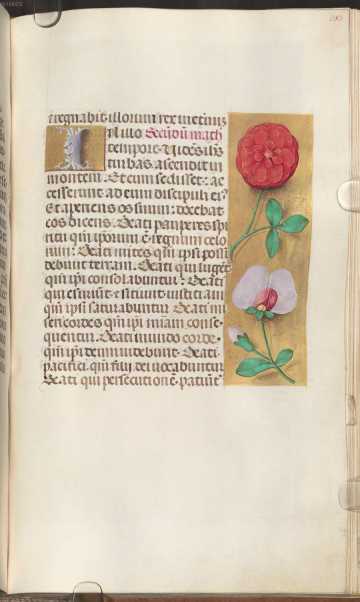 et regnabit illorum rex in eternus
In illo Secūdum math
tempore: Vidēs ih̄s
turbas ascendit in
montem. Et cum sedisset: ac
cesserunt ad eum discipuli ei9
Et aperiens os suum: docebat
eos dicens. Beati pauperes spi
ritu q̄m ipsorum ē regnum celo
rum: Beati mites q̄m ipsi possi
debunt terram. Beati qui luget
q̄m ipsi consolabuntur: Beati
qui esuriūt et sitiunt iusticiam
q̄m ipsi saturabuntur Beati mi
sericordes q̄m ipi m̄iam conse
quentur. Beati mundo corde.
q̄m ipi deum videbunt. Beati
pacifici q̄m filii dei vocabuntur
Beati qui persecutionē patiunt̄